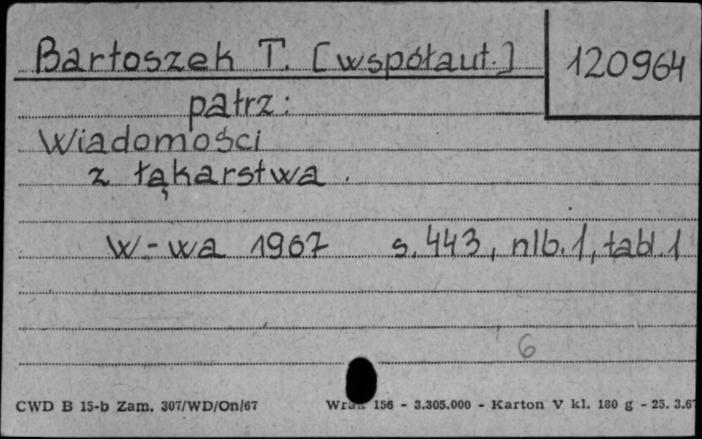 Bartoszek T. [współaut.] 120964
patrz:
Wiadomości
z łąkarstwa.
W-wa 1967 s. 443, nlb. 1, tabl 1
6
CWD B 15-b Zam. 307/WD/On/67 156 - 3.305.000 - Karton V kl. 180 g - 25. 3.67